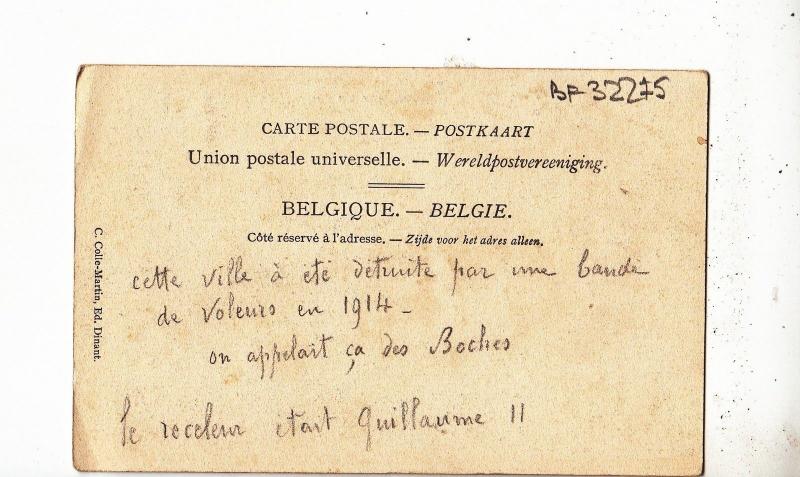 BF 32275
CARTE POSTALE. — POSTKAART
Union postale universelle. — Wereldpostvereeniging.
BELGIQUE. — BELGIE.
Côté réservé à l'adresse. — Zijde voor het adres alleen.
cette ville à été détruite par une bande
de voleurs en 1914 -
on appelait ça des Boches
le receleur était Guillaume II
C. Colle-Martin, Ed. Dinant.